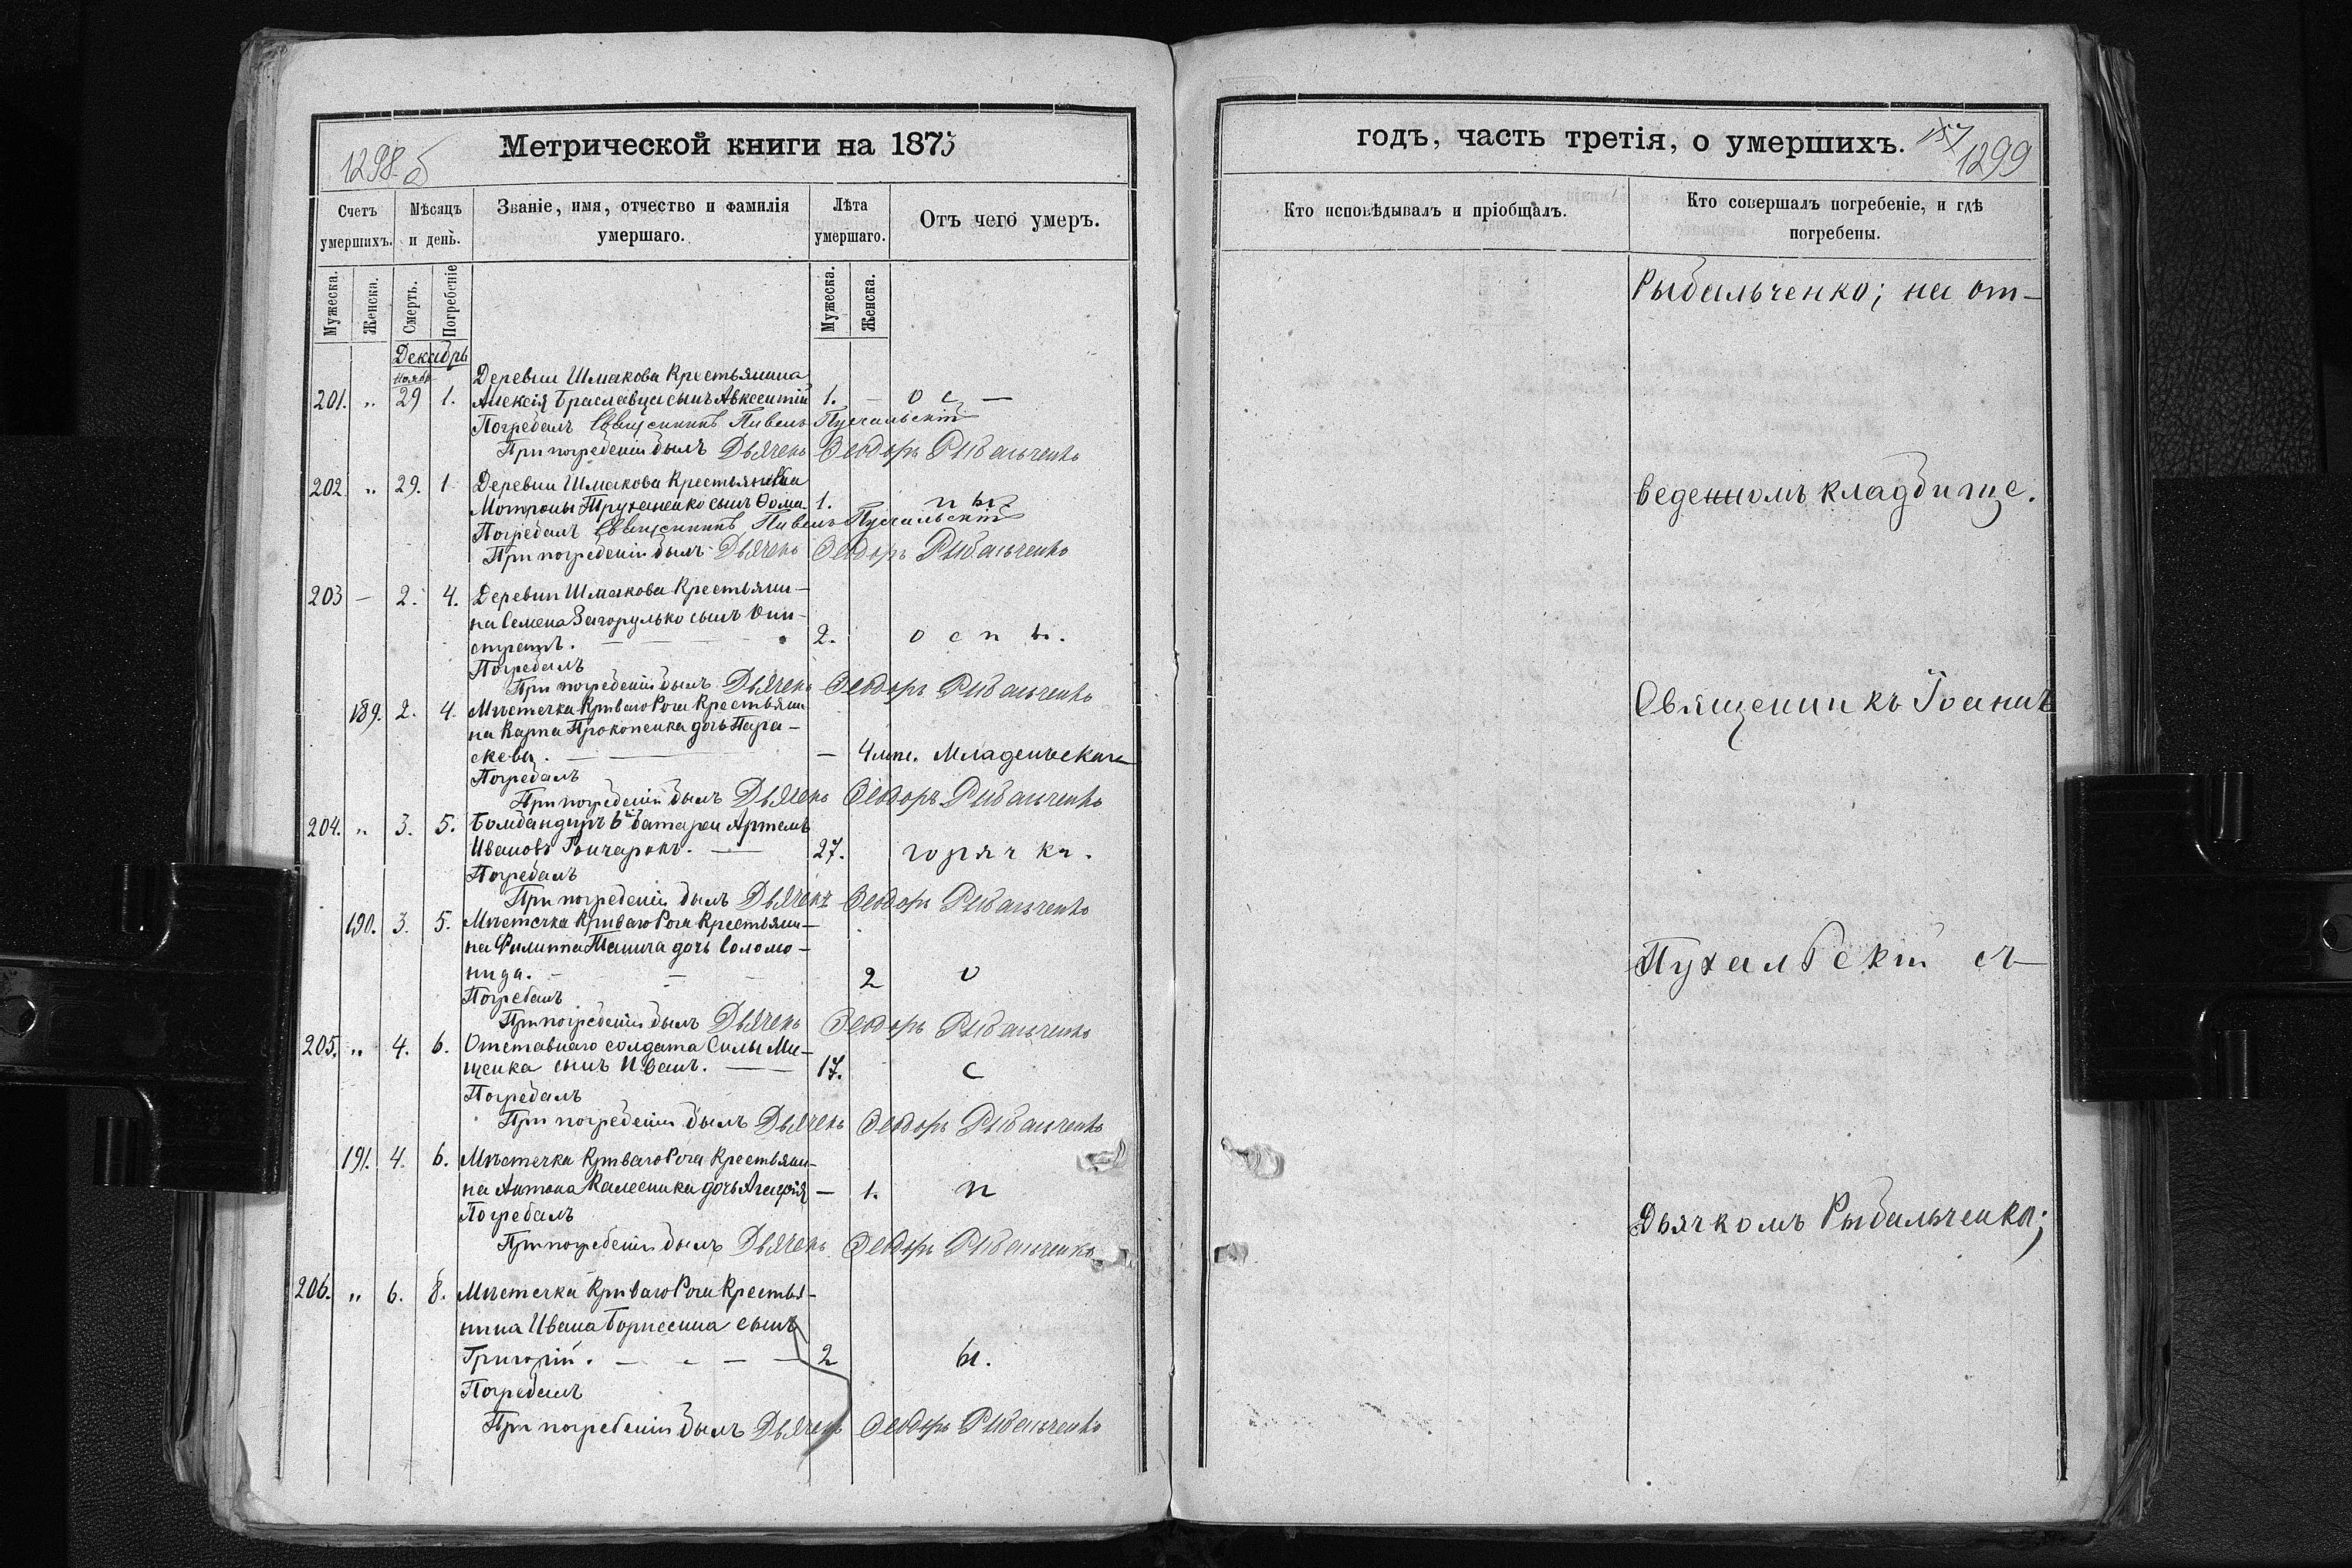 Метрической книги на 1875
1298 б
Счетъ умершихъ.
Мѣсяцъ и день.
Званіе, имя, отчество и фамилія умершаго.
Лѣта умершаго.
Отъ чего умеръ.
Мужеска.
Женска.
Смерть.
Погребеніе
Мужеска.
Женска.
Декабрь
Деревни Шмакова Крестьянина
Ноябр
201. „ 29 1. Алексія Браславца сынъ Авксентій 1. — о с —
Погребалъ Священникъ Павелъ Пухальскій
При погребеніи былъ Дьячекъ Ѳеодоръ Рыбальченко
202 „ 29. 1 Деревни Шмакова Крестьянки
Мотроны Труханенко сынъ Ѳома. 1. п ы.
Погребалъ Священникъ Павелъ Пухальскій
При погребеніи былъ Дьячекъ Ѳеодоръ Рыбальченко
203 — 2. 4. Деревни Шмакова Крестьяни-
на Семена Загорулько сынъ Они-
стратъ. — 2. о с п ы.
Погребалъ
При погребеніи былъ Дьячекъ Ѳеодоръ Рыбальченко
189. 2. 4. Мѣстечка Кривого Рога Крестьяни-
на Карпа Прокопенка дочь Пара-
скева. — — 4 мѣс. Младенческая
Погребалъ
При погребеніи былъ Дьячекъ Ѳеодоръ Рыбальченко
204. „ 3. 5. Бомбандиръ 6й батареи Артемъ
Ивановъ Гончарокъ. — 27. горячка.
Погребалъ
При погребеніи былъ Дьячекъ Ѳеодоръ Рыбальченко
190. 3. 5. Мѣстечка Кривого Рога Крестьяни-
на Филиппа Ташича дочь Соломо-
нида. — — 2 о
Погребалъ
При погребеніи былъ Дьячекъ Ѳеодоръ Рыбальченко
205. „ 4. 6. Отставного солдата Силы Ми-
щенка сынъ Иванъ. — 17. с
Погребалъ
При погребеніи былъ Дьячекъ Ѳеодоръ Рыбальченко
191. 4. 6. Мѣстечка Кривого Рога Крестьяни-
на Антона Калесника дочь Агафія — 1. п
Погребалъ
При погребеніи былъ Дьячекъ Ѳеодоръ Рыбальченко
206. „ 6. 8. Мѣстечка Кривого Рога Крестья-
нина Ивана Борисенка сынъ
Григорій. — — — 2 ы.
Погребалъ
При погребеніи былъ Дьячекъ Ѳеодоръ Рыбальченко
годъ, часть третія, о умершихъ.
157
1299
Кто исповѣдывалъ и пріобщалъ.
Кто совершалъ погребеніе, и гдѣ погребены.
Рыбальченко; на от-
веденномъ кладбище.
Священникъ Іоаннъ
Пухальскій съ
Дьячкомъ Рыбальченко;